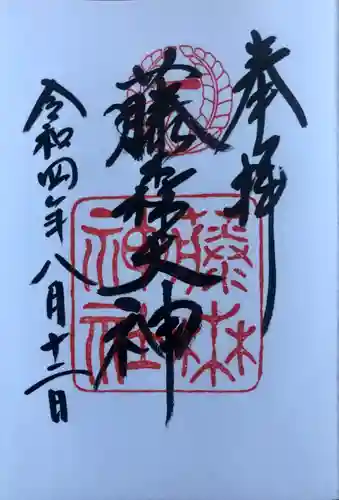 奉拝
藤森大神
令和四年八月十二日
藤森
神社